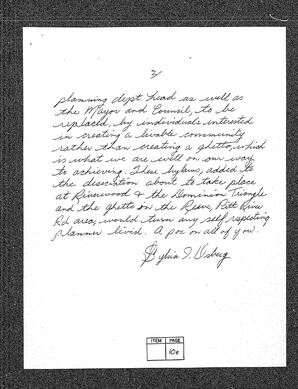 2/
planning dept. head as well as
the Mayor and Council, to be
replaced, by individuals interested
in creating a livable community
rather than creating a ghetto, which
is what we are well on our way
to achieving. These bylaws, added to
the desecration about to take place
at Riverwood & the Dominion Triangle
and the ghetto on the Reeve, Pitt River
Rd area, would turn any self respecting
planner livid. A pox on all of you.
ITEM PAGE
10e